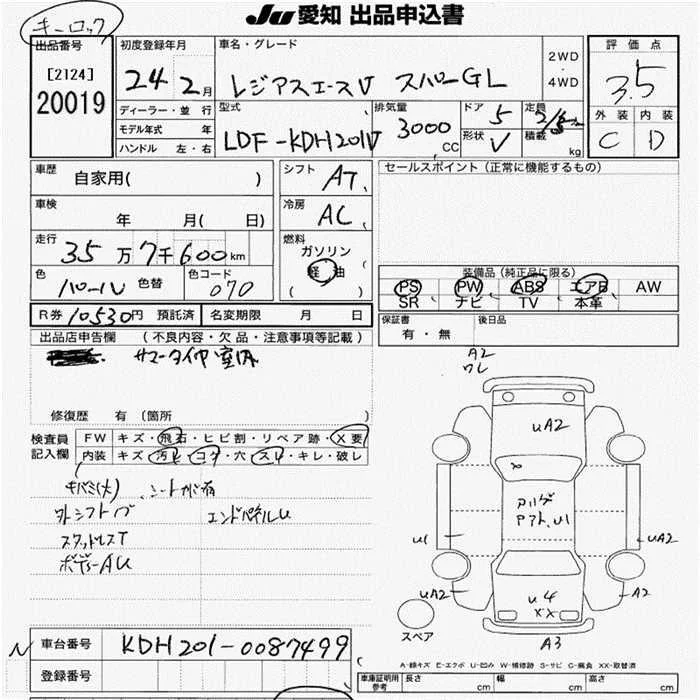 JU愛知 出品申込書
キーロック
出品番号
[2124]
20019
初度登録年月
24年2月
ディーラー・並 行
モデル年式 年
ハンドル 左・右
車名・グレード
レジアスエースV スハ゜ローGL
2WD
・
4WD
型式
LDF-KDH201V
排気量
3000
CC
ドア
5
形状
V
定員
積載
kg
評 価 点
3.5
外 装 内 装
C D
車歴
自家用( )
車検
年 月( 日)
走行
35万7千600km
色
パール
色替
色コード
070
シフト
AT
冷房
AC
燃料
ガソリン
軽 油
( )
セールスポイント (正常に機能するもの)
装備品 (純正品に限る)
PS PW ABS エアB AW
SR ナビ TV 本革
R券 10530円 預託済
名変期限 月 日
保証書
有・無
後日品
出品店申告欄 (不良内容・欠 品・注意事項等記載)
サマータイヤ室内
修復歴 有 (箇所 )
検査員
記入欄
FW キズ・飛石・ヒビ割・リペア跡・X要
内装 キズ・汚レ・コゲ・穴・スレ・キレ・破レ
キバミ(大) シートカバー有
外シフトノブ エンドパネルU
スタッドレスT
ボディーAU
A2
ワレ
UA2
アリゲ
Pアト、U1
U1
UA2
UA2
A2
U4
XX
A3
スペア
A-線キズ E-エクボ U-凹み W-補修跡 S-サビ C-腐食 XX-取替済
N
車台番号
KDH201-0087499
登録番号
車庫証明用
参考
長さ cm
幅 cm
高さ cm